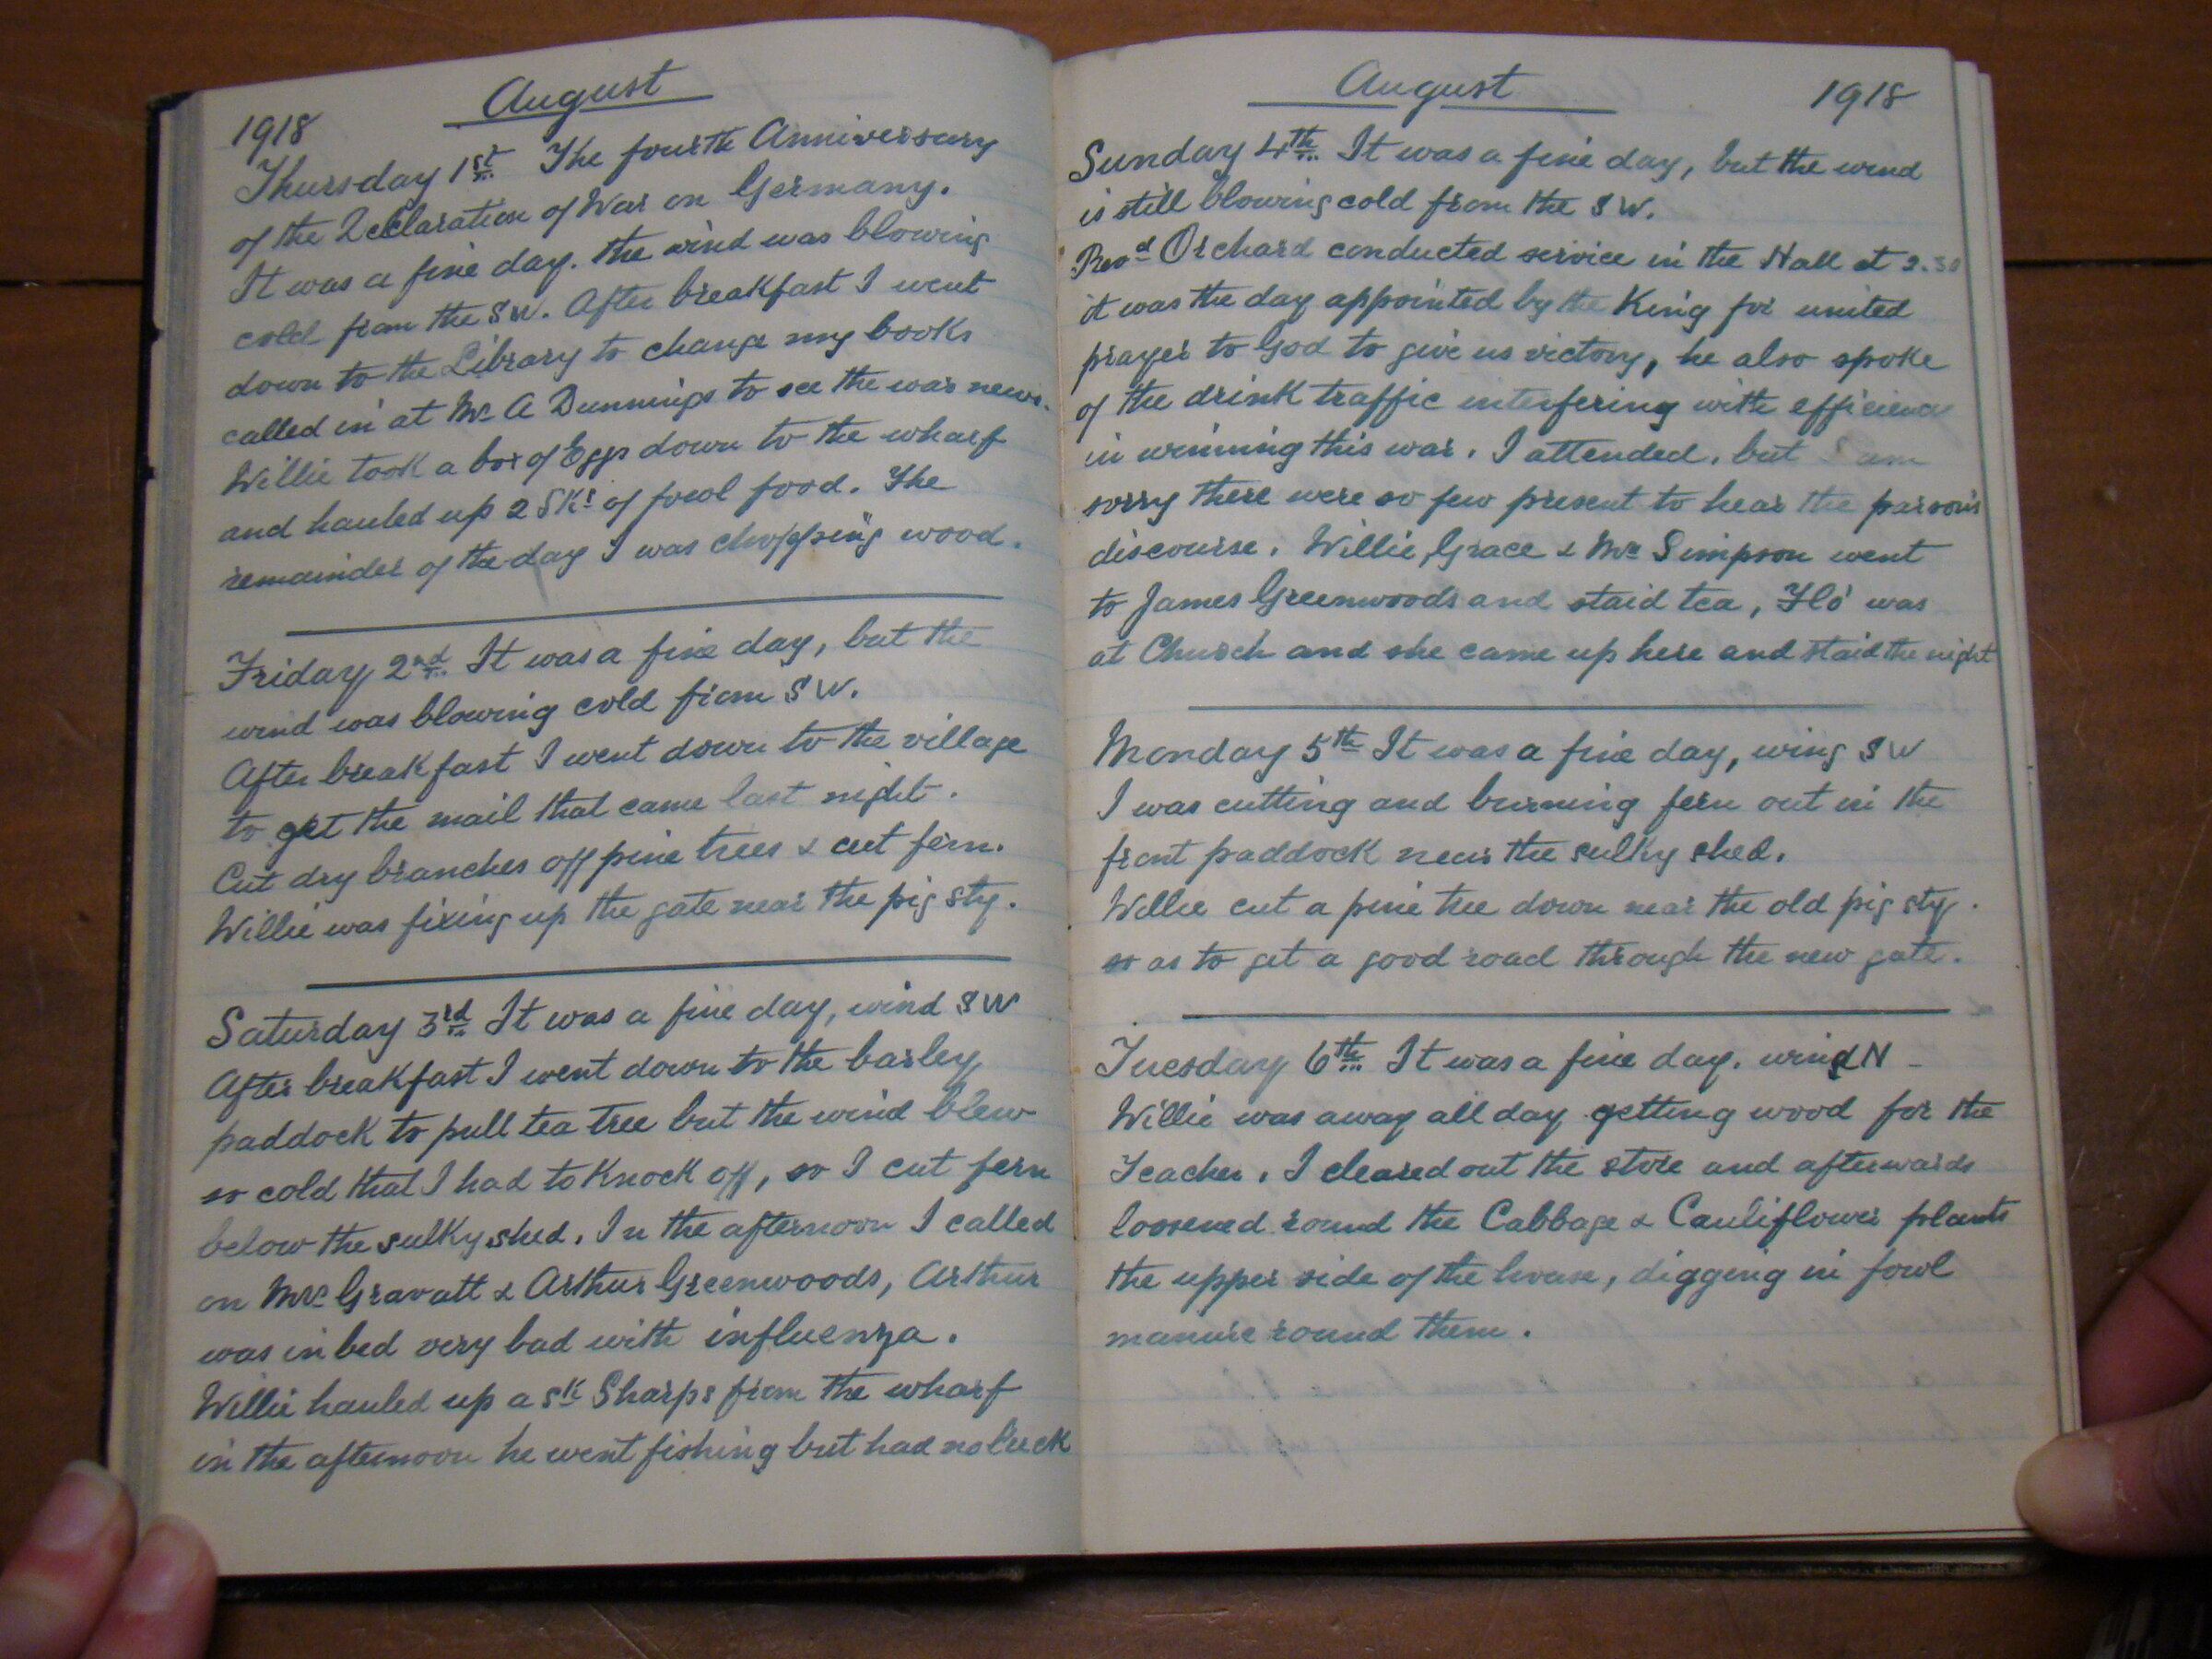 August
1918
Thursday 1st The fourth Anniversary
of the Decclaration of War on Germany.
It was a fine day. the wind was blowing
cold from the SW. After breakfast I went
down to the Library to change my books
called in at Mr A Dunnings to see the war news.
Willie took a box of Eggs down to the wharf
and hauled up 2 Sks of fowl food. The
remainder of the day I was chopping wood.
Friday 2nd It was a fine day, but the
wind was blowing cold from SW.
After breakfast I went down to the village
to get the mail that came last night.
Cut dry branches off pine trees & cut fern.
Willie was fixing up the gate near the pig sty.
Saturday 3rd It was a fine day, wind SW
After breakfast I went down to the barley
paddock to pull tea tree but the wind blew
so cold that I had to Knock off, so I cut fern
below the sulky shed. In the afternoon I called
on Mrs Gravatt & Arthur Greenwoods, Arthur
was in bed very bad with influenza.
Willie hauled up a sk Sharps from the wharf
in the afternoon he went fishing but had no luck
August
1918
Sunday 4th It was a fine day, but the wind
is still blowing cold from the SW.
Revd Orchard conducted service in the Hall at 2.30
it was the day appointed by the King for united
prayer to God to give us victory, he also spoke
of the drink traffic interfering with efficiency
in winning this war. I attended, but I am
sorry there were so few present to hear the parson's
discourse. Willie, Grace & Mr Simpson went
to James Greenwoods and staid tea, Flo' was
at Church and she came up here and staid the night
Monday 5th It was a fine day, wing SW
I was cutting and burning fern out in the
front paddock near the sulky shed.
Willie cut a pine tree down near the old pig sty.
so as to get a good road through the new gate.
Tuesday 6th It was a fine day. wind N
Willie was away all day getting wood for the
Teacher. I cleared out the store and afterwards
loosened round the Cabbage & Cauliflower plants
the upper side of the house, digging in fowl
manure round them.